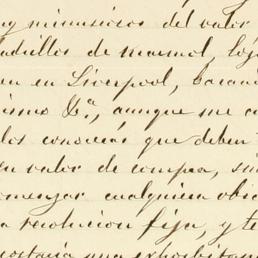 y minuciosos del valor
ladrillos de marmol, loz
en en Liverpool, barani
ismo &a, aunque me c
los conoceis que deben
en valor de compra, sin
omenzar cualquiera obi
a resolucion fija, y te
costaria una exhorbitan